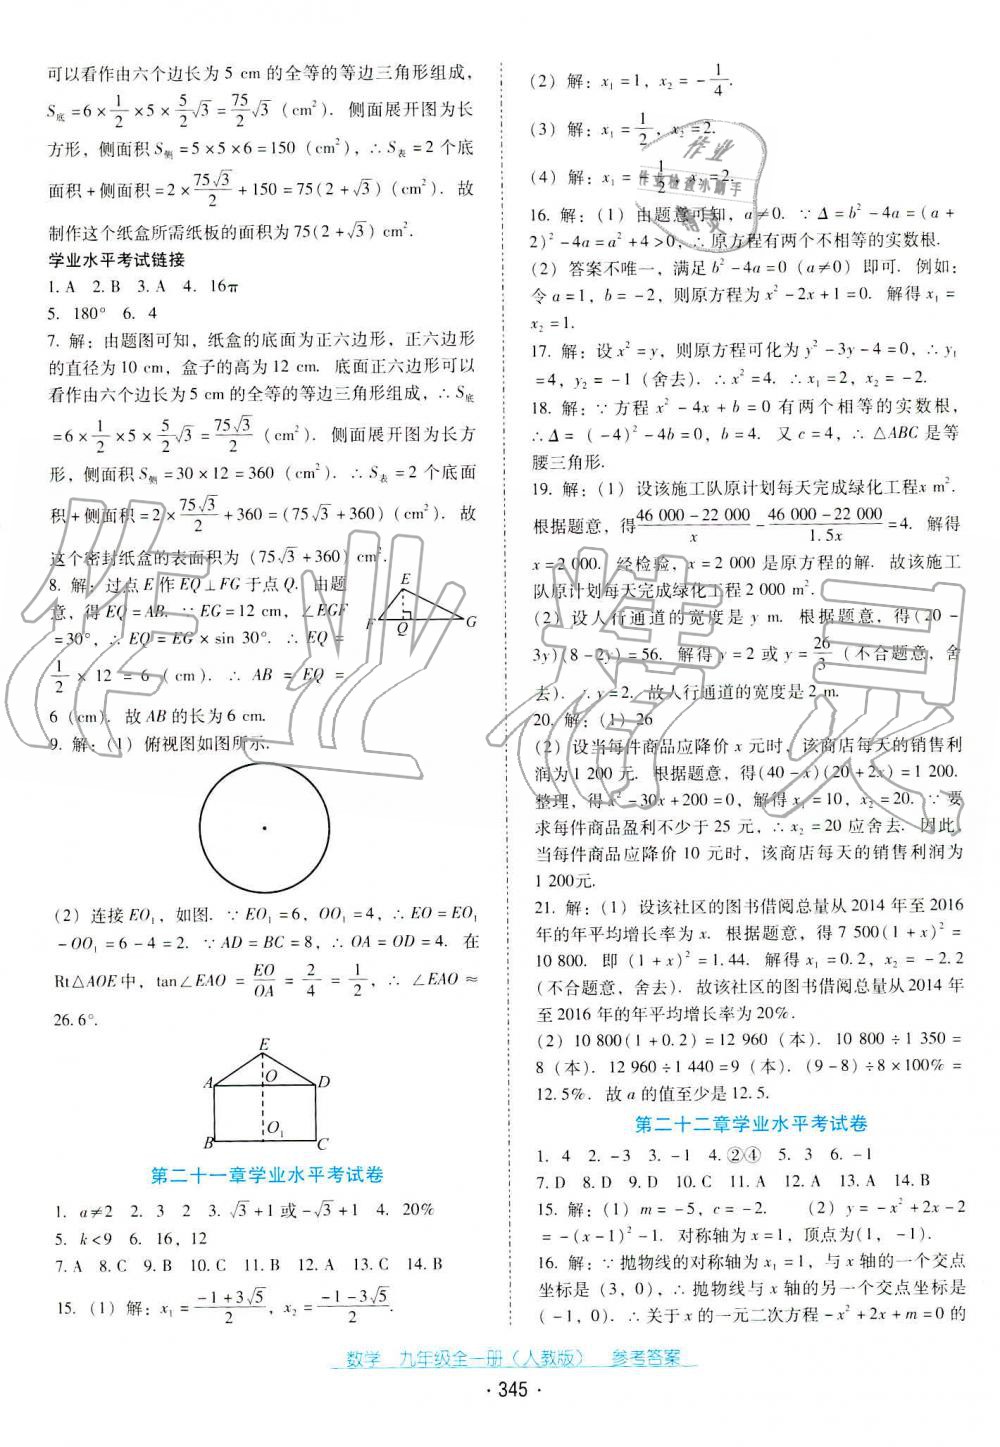 可以看作由六个边长为 5 cm 的全等的等边三角形组成，
S底=6×1/2×5×5/2√3=75/2√3（cm²）. 侧面展开图为长
方形，侧面积 S侧=5×5×6=150（cm²），∴S表=2 个底
面积+侧面积=2×75√3/2+150=75(2+√3)（cm²）. 故
制作这个纸盒所需纸板的面积为 75(2+√3)cm².
学业水平考试链接
1. A 2. B 3. A 4. 16π
5. 180° 6. 4
7. 解：由题图可知，纸盒的底面为正六边形，正六边形
的直径为 10 cm，盒子的高为 12 cm. 底面正六边形可以
看作由六个边长为 5 cm 的全等的等边三角形组成，∴S底
=6×1/2×5×5/2√3=75√3/2（cm²）. 侧面展开图为长方
形，侧面积 S侧=30×12=360（cm²）. ∴S表=2 个底面
积+侧面积=2×75√3/2+360=(75√3+360)（cm²）. 故
这个密封纸盒的表面积为（75√3+360）cm².
8. 解：过点 E 作 EQ⊥FG 于点 Q. 由题
意，得 EQ=AB. ∵EG=12 cm，∠EGF
=30°，∴EQ=EG×sin 30°. ∴EQ=
1/2×12=6（cm）. ∴AB=EQ=
6（cm）. 故 AB 的长为 6 cm.
E
F
Q
G
9. 解：(1) 俯视图如图所示.
(2) 连接 EO₁，如图. ∵EO₁=6，OO₁=4，∴EO=EO₁
-OO₁=6-4=2. ∵AD=BC=8，∴OA=OD=4. 在
Rt△AOE 中，tan∠EAO=EO/OA=2/4=1/2，∴∠EAO≈
26.6°.
E
A
O
D
B
O₁
C
第二十一章学业水平考试卷
1. a≠2 2. 3 2 3. √3+1 或-√3+1 4. 20%
5. k<9 6. 16，12
7. A 8. C 9. B 10. C 11. B 12. A 13. A 14. B
15. (1) 解：x₁=-1+3√5/2，x₂=-1-3√5/2.
(2) 解：x₁=1，x₂=-1/4.
(3) 解：x₁=1/2，x₂=2.
(4) 解：x₁=1/2，x₂=2.
16. 解：(1) 由题意可知，a≠0. ∵Δ=b²-4a=(a+
2)²-4a=a²+4>0，∴原方程有两个不相等的实数根.
(2) 答案不唯一，满足 b²-4a=0（a≠0）即可. 例如：
令 a=1，b=-2，则原方程为 x²-2x+1=0. 解得 x₁=
x₂=1.
17. 解：设 x²=y，则原方程可化为 y²-3y-4=0，∴y₁
=4，y₂=-1（舍去）. ∴x²=4. ∴x₁=2，x₂=-2.
18. 解：∵方程 x²-4x+b=0 有两个相等的实数根，
∴Δ=（-4)²-4b=0，b=4. 又 c=4，∴△ABC 是等
腰三角形.
19. 解：(1) 设该施工队原计划每天完成绿化工程x m².
根据题意，得46 000-22 000/x-46 000-22 000/1.5x=4. 解得
x=2 000. 经检验，x=2 000 是原方程的解. 故该施工
队原计划每天完成绿化工程 2 000 m².
(2) 设人行通道的宽度是 y m. 根据题意，得(20-
3y)(8-2y)=56. 解得 y=2 或 y=26/3（不合题意，舍
去）. ∴y=2. 故人行通道的宽度是 2 m.
20. 解：(1) 26
(2) 设当每件商品应降价 x 元时，该商店每天的销售利
润为1 200 元. 根据题意，得(40-x)(20+2x)=1 200.
整理，得 x²-30x+200=0，解得 x₁=10，x₂=20. ∵要
求每件商品盈利不少于 25 元，∴x₂=20 应舍去. 因此，
当每件商品应降价 10 元时，该商店每天的销售利润为
1 200元.
21. 解：(1) 设该社区的图书借阅总量从 2014 年至 2016
年的年平均增长率为 x. 根据题意，得 7 500(1+x)²=
10 800. 即 (1+x)²=1.44. 解得 x₁=0.2，x₂=-2.2
(不合题意，舍去). 故该社区的图书借阅总量从 2014 年
至 2016 年的年平均增长率为 20%.
(2) 10 800(1+0.2)=12 960（本）. 10 800÷1 350=
8（本）. 12 960÷1 440=9（本）. (9-8)÷8×100%=
12.5%. 故 a 的值至少是 12.5.
第二十二章学业水平考试卷
1. 4 2. -3 3. -1 4. ②④ 5. 3 6. -1
7. D 8. D 9. D 10. C 11. A 12. A 13. A 14. B
15. 解：(1) m=-5，c=-2. (2) y=-x²+2x-2
=-(x-1)²-1. 对称轴为 x=1，顶点为(1，-1).
16. 解：∵抛物线的对称轴为 x=1，与 x 轴的一个交点
坐标是（3，0），∴抛物线与 x 轴的另一个交点坐标是
(-1，0). ∴关于 x 的一元二次方程-x²+2x+m=0 的
数学 九年级全一册（人教版） 参考答案
· 345 ·
作业
作业检查小助手
精灵
作业精灵